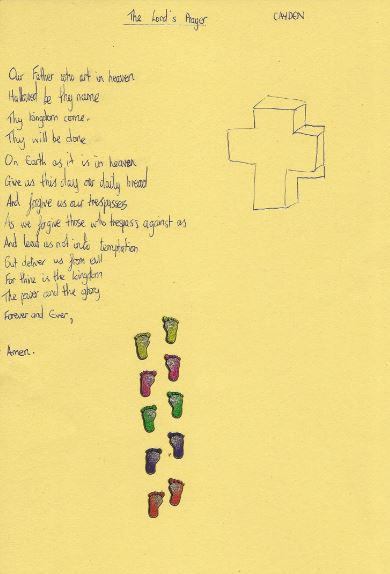 The Lord's Prayer
CAYDEN
Our Father who art in heaven
Hallowed be thy name
Thy kingdom come.
Thy will be done
On Earth as it is in heaven
Give us this day our daily bread
And forgive us our trespasses
As we forgive those who trespass against us
And lead us not into temptation
But deliver us from evil
For thine is the kingdom
The power and the glory
Forever and Ever,
Amen.